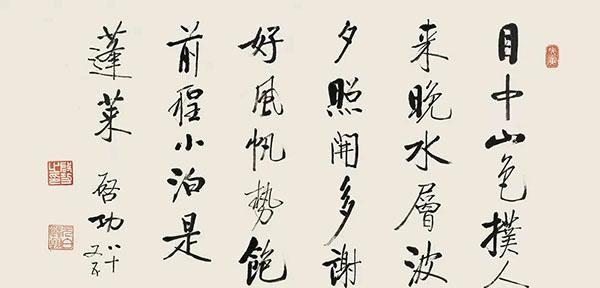 目中山色撲人
来晚水層波
夕照開多謝
好風帆勢飽
前程小泊是
蓬莱
啓功
八十
又